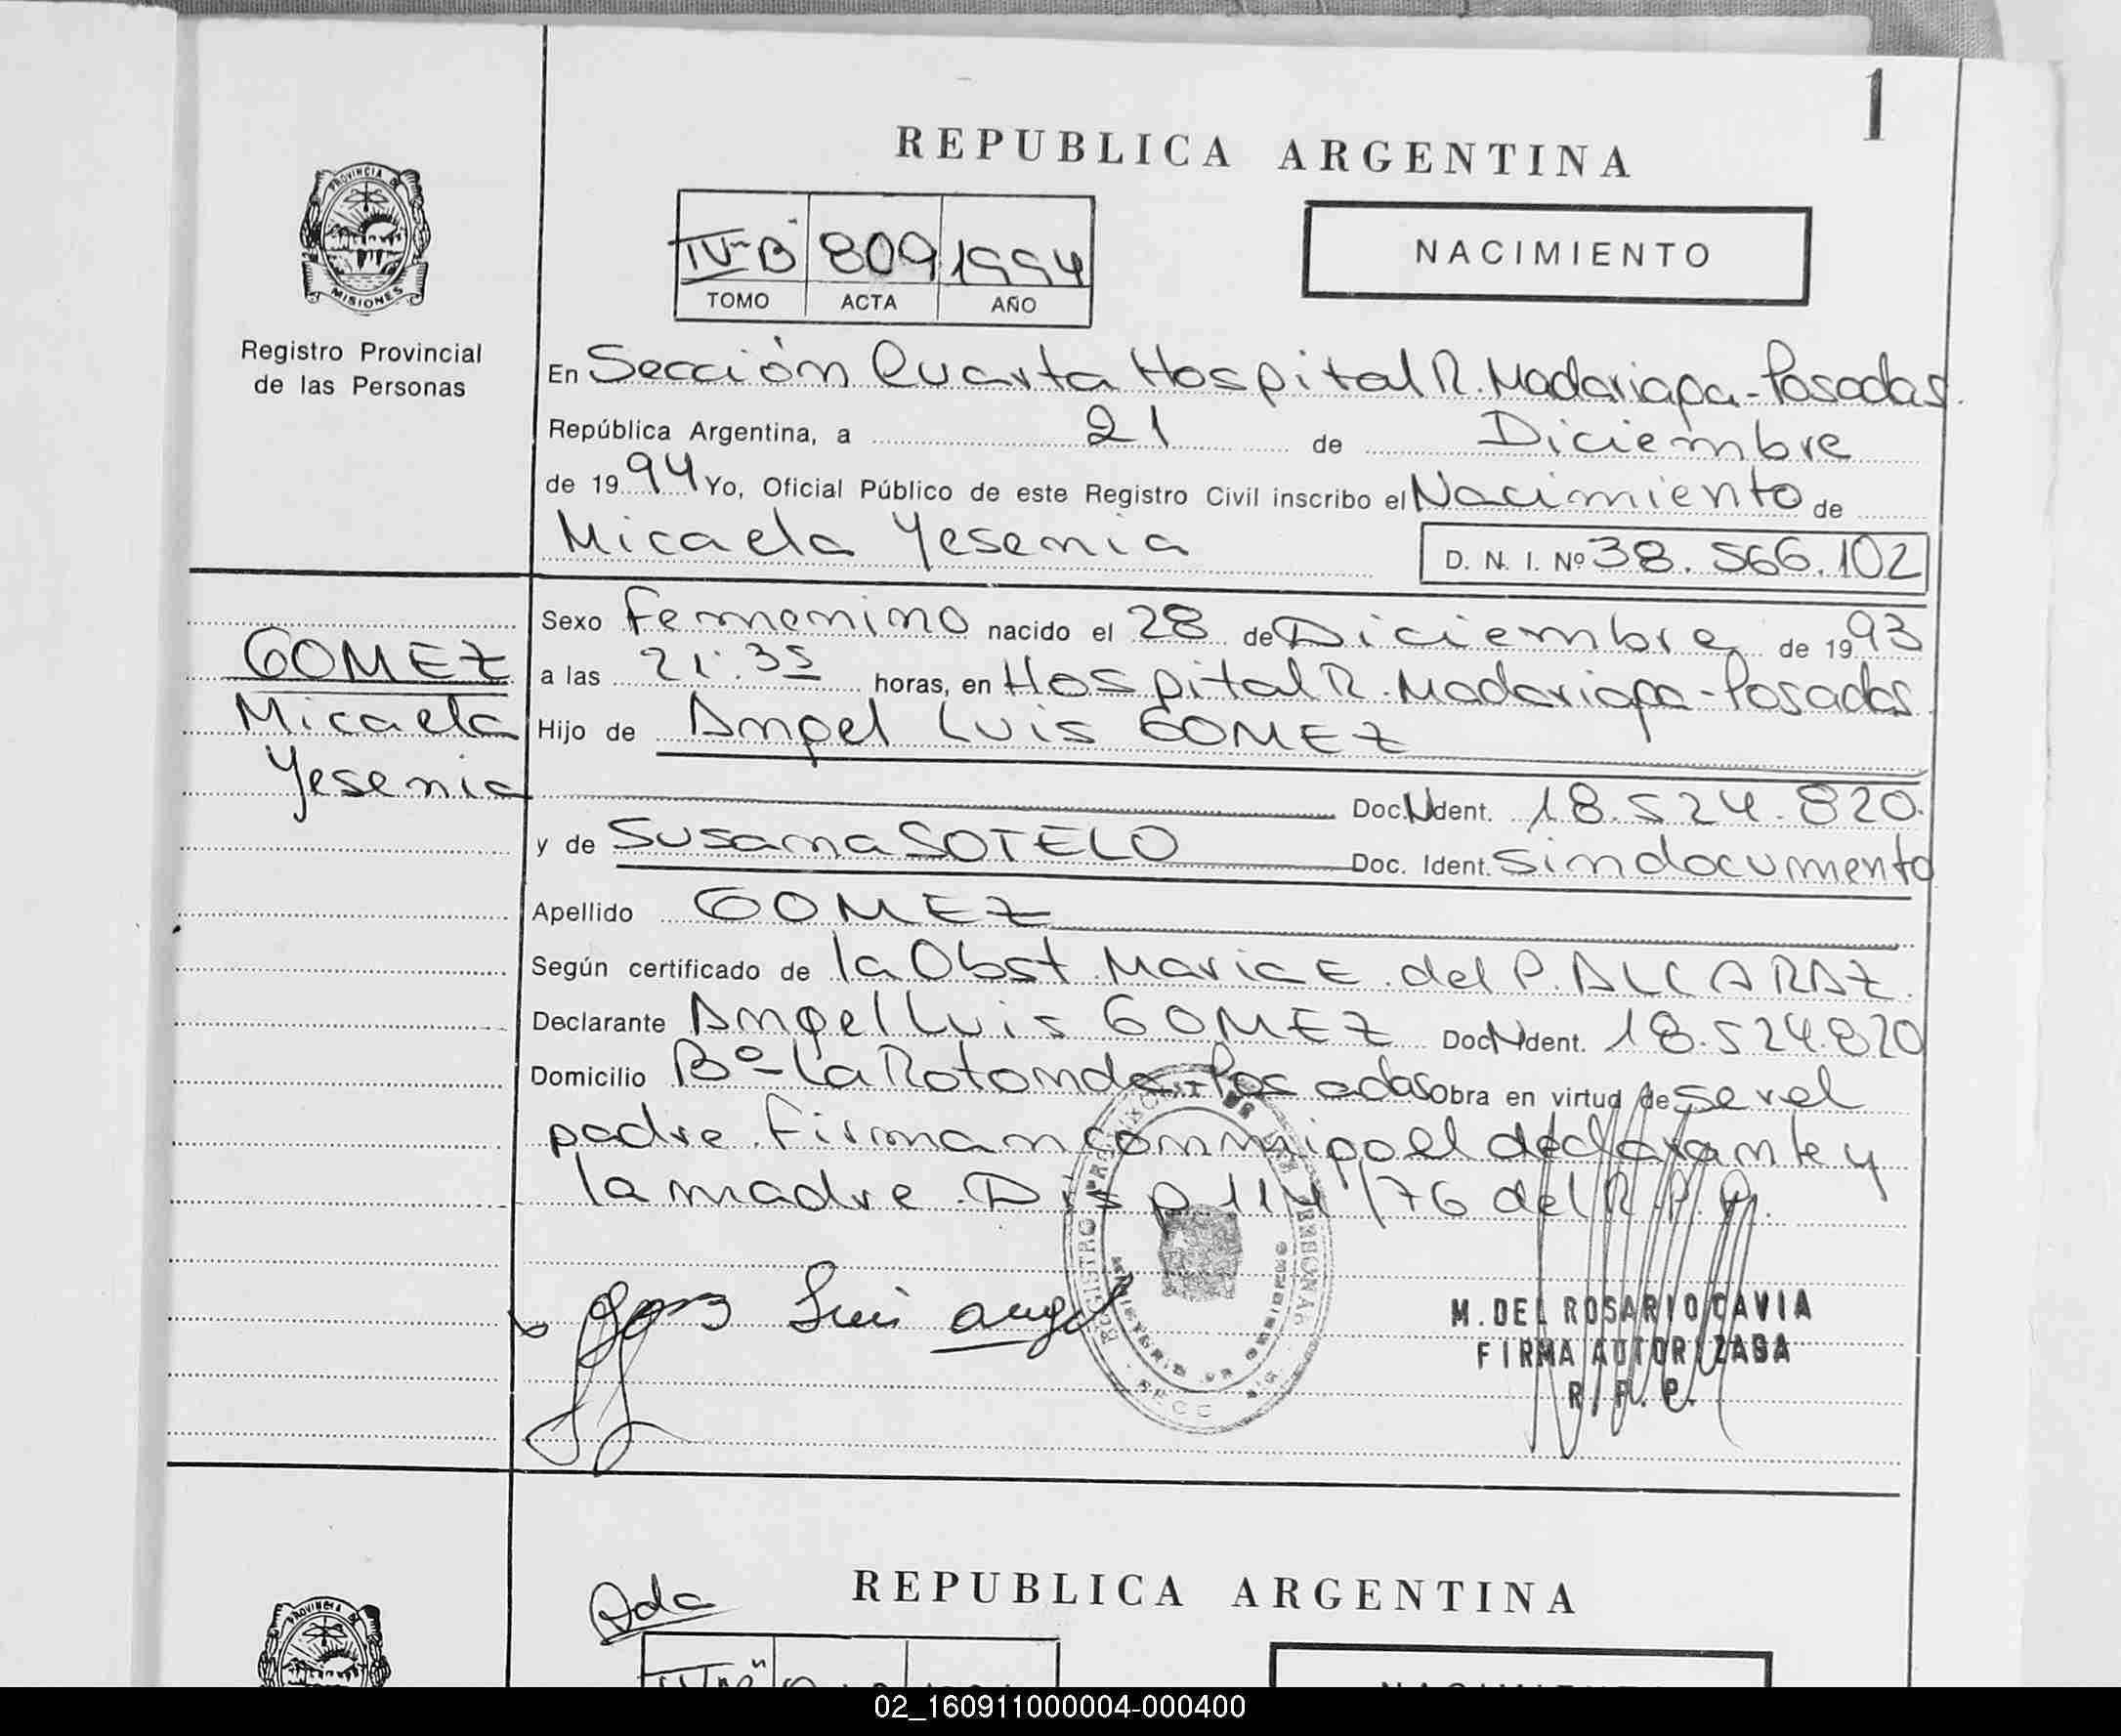 1
REPUBLICA ARGENTINA
PROVINCIA DE
MISIONES
Registro Provincial
de las Personas
IV-B" 809 1994
TOMO ACTA AÑO
NACIMIENTO
En Sección Cuarta Hospital R. Madariaga-Posadas.
República Argentina, a 21 de Diciembre
de 1994 Yo, Oficial Público de este Registro Civil inscribo el Nacimiento de
Micaela Yesenia D. N. I. Nº 38.566.102
GOMEZ
Micaela
Yesenia
Sexo Femenino nacido el 28 de Diciembre de 1993
a las 21:35 horas, en Hospital R. Madariaga-Posadas.
Hijo de Angel Luis GOMEZ
Doc.N Ident. 18.524.820.
y de Susana SOTELO Doc. Ident. sin documento
Apellido GOMEZ
Según certificado de la Obst Maria E. del P. ALCARAZ.
Declarante Angel Luis GOMEZ Doc N Ident. 18.524.820
Domicilio Bº-La Rotonda-Posadas Obra en virtud de ser el
padre. Firman conmigo el declarante y
la madre. Disp 114/76 del R.P.P.
Gomez Luis angel
REGISTRO PROVINCIAL DE LAS PERSONAS
MINISTERIO DE GOBIERNO
M. DEL ROSARIO CAVIA
FIRMA AUTORIZADA
R. P. P.
Ada
REPUBLICA ARGENTINA
PROVINCIA DE
NACIMIENTO
02_160911000004-000400